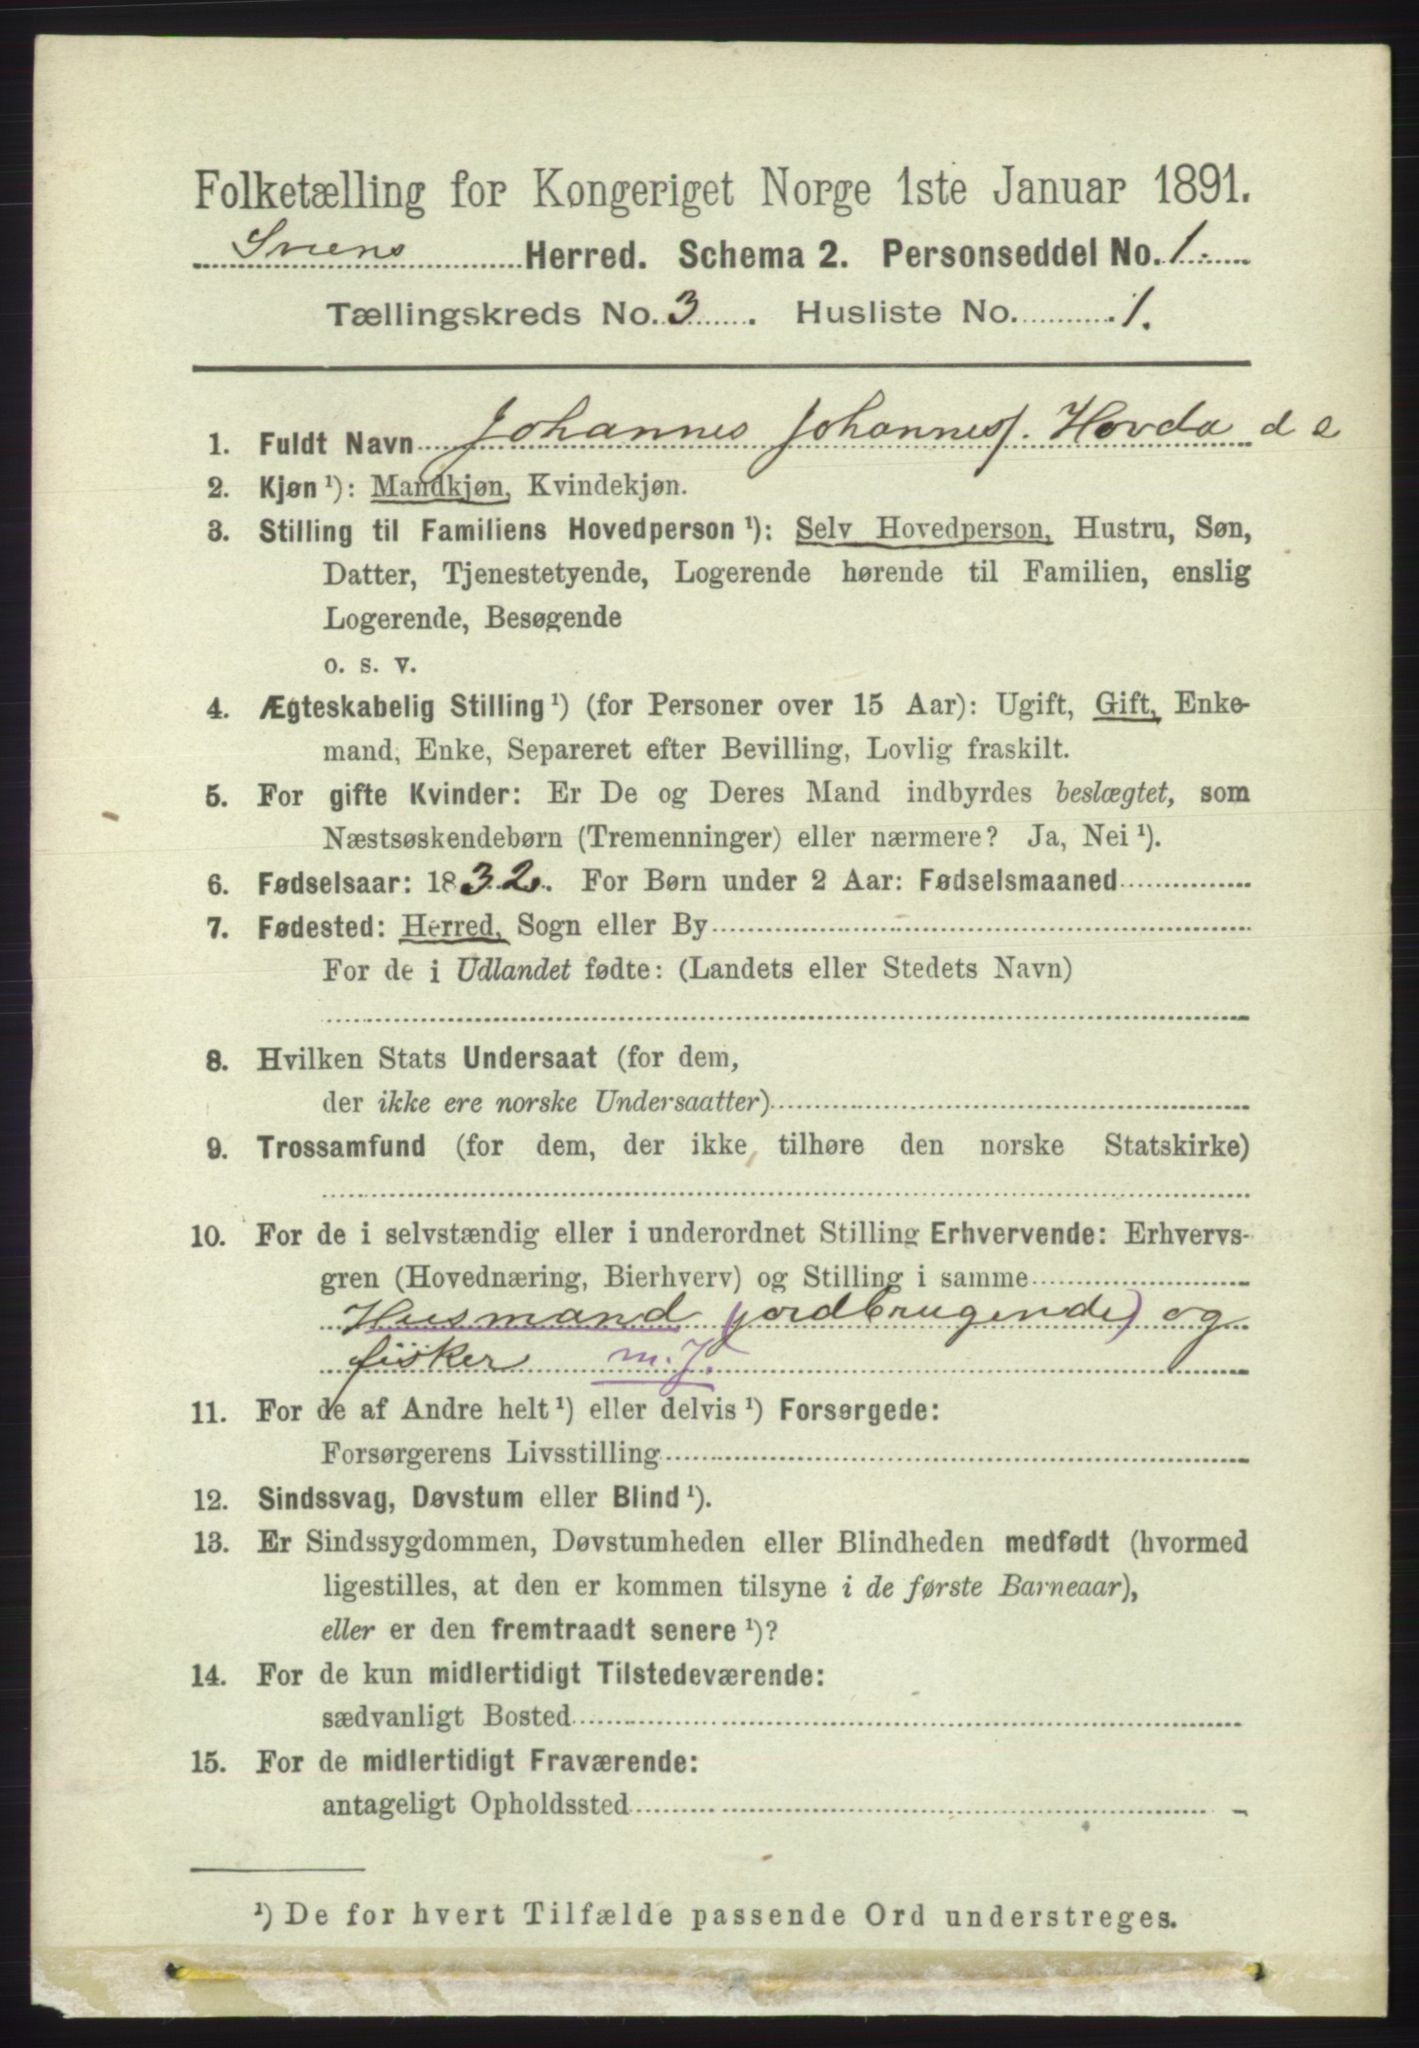 Folketælling for Kongeriget Norge 1ste Januar 1891.
Herred. Schema 2. Personseddel No. 1.
Tællingskreds No. 3. Husliste No. 1.
1. Fuldt Navn Johannes Johannesf. Hovda d e
2. Kjøn ¹): Mandkjøn, Kvindekjøn.
3. Stilling til Familiens Hovedperson ¹): Selv Hovedperson, Hustru, Søn,
Datter, Tjenestetyende, Logerende hørende til Familien, enslig
Logerende, Besøgende
o. s. v.
4. Ægteskabelig Stilling ¹) (for Personer over 15 Aar): Ugift, Gift, Enke-
mand, Enke, Separeret efter Bevilling, Lovlig fraskilt.
5. For gifte Kvinder: Er De og Deres Mand indbyrdes beslægtet, som
Næstsøskendebørn (Tremenninger) eller nærmere? Ja, Nei ¹).
6. Fødselsaar: 1832. For Børn under 2 Aar: Fødselsmaaned
7. Fødested: Herred, Sogn eller By
For de i Udlandet fødte: (Landets eller Stedets Navn)
8. Hvilken Stats Undersaat (for dem,
der ikke ere norske Undersaatter)
9. Trossamfund (for dem, der ikke tilhøre den norske Statskirke)
10. For de i selvstændig eller i underordnet Stilling Erhvervende: Erhvervs-
gren (Hovednæring, Bierhverv) og Stilling i samme
Husmand (jordbrugende) og
fisker m. J.
11. For de af Andre helt ¹) eller delvis ¹) Forsørgede:
Forsørgerens Livsstilling
12. Sindssvag, Døvstum eller Blind ¹).
13. Er Sindssygdommen, Døvstumheden eller Blindheden medfødt (hvormed
ligestilles, at den er kommen tilsyne i de første Barneaar),
eller er den fremtraadt senere ¹)?
14. For de kun midlertidigt Tilstedeværende:
sædvanligt Bosted
15. For de midlertidigt Fraværende:
antageligt Opholdssted
¹) De for hvert Tilfælde passende Ord understreges.